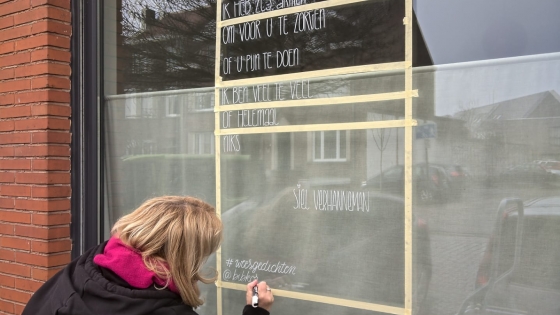 IK HEB ZES ARMEN
OM VOOR U TE ZORGEN
OF U PIJN TE DOEN
IK BEN VEEL TE VEEL
OF HELEMAAL
NIKS
SIEL VERHANNEMAN
#raamgedichten